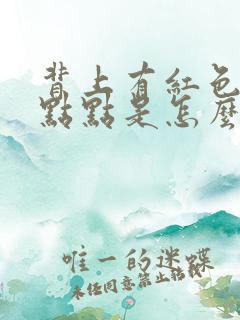 背上有紅色
點點是怎麼
唯一的迷蝶
未經同意禁止轉載